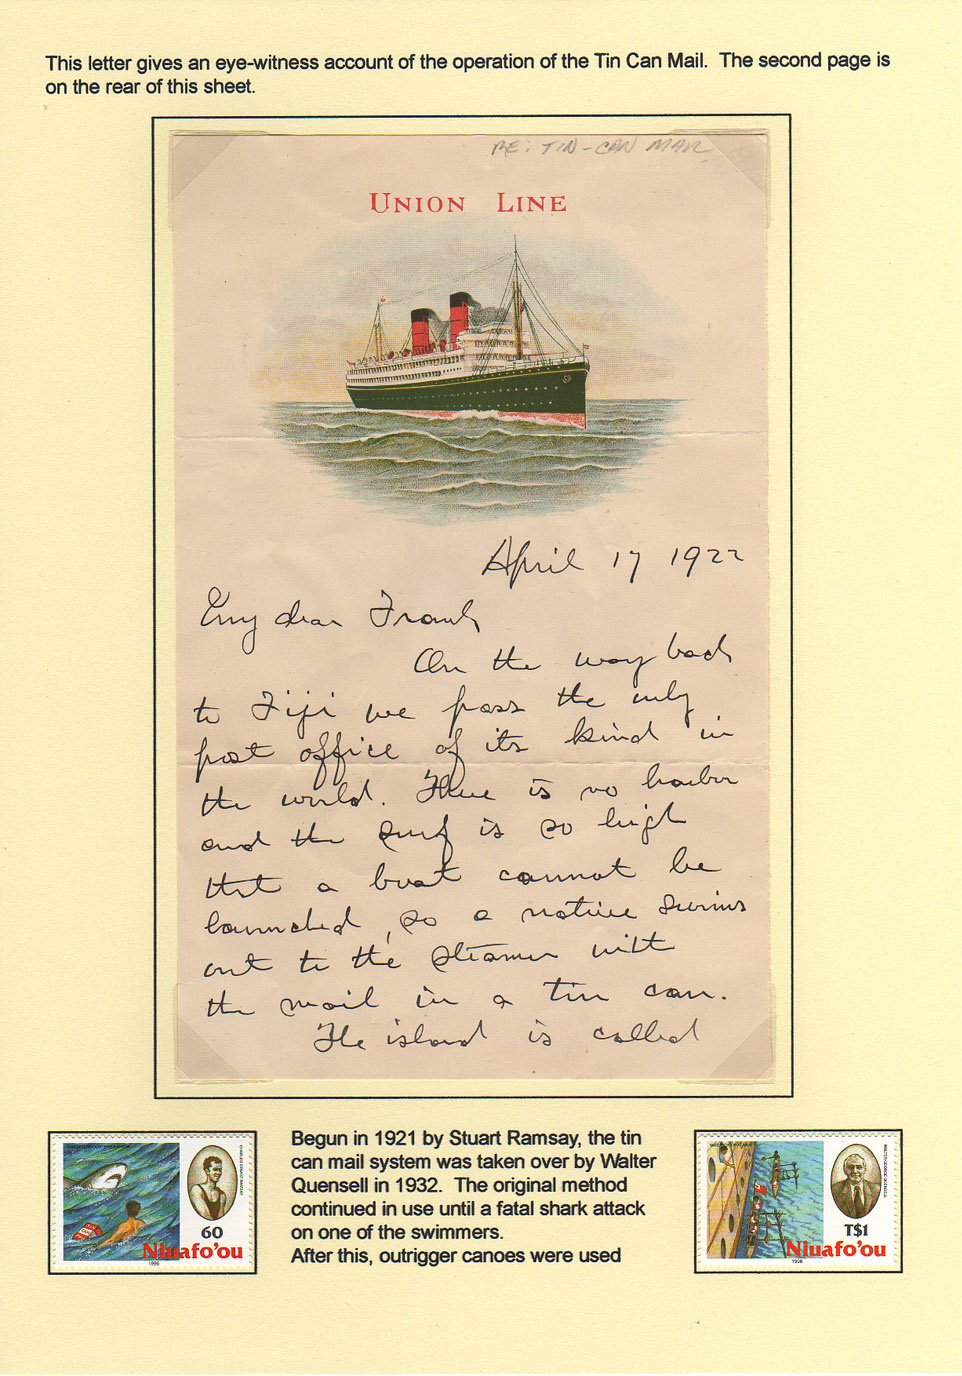 This letter gives an eye-witness account of the operation of the Tin Can Mail. The second page is
on the rear of this sheet.
RE: TIN-CAN MAIL
UNION LINE
April 17 1922
My dear Frank
On the way back
to Fiji we pass the only
post office of its kind in
the world. There is no harbor
and the surf is so high
that a boat cannot be
launched, so a native swims
out to the steamer with
the mail in a tin can.
The island is called
60
Niuafo'ou
1996
Begun in 1921 by Stuart Ramsay, the tin
can mail system was taken over by Walter
Quensell in 1932. The original method
continued in use until a fatal shark attack
on one of the swimmers.
After this, outrigger canoes were used
T$1
Niuafo'ou
1996